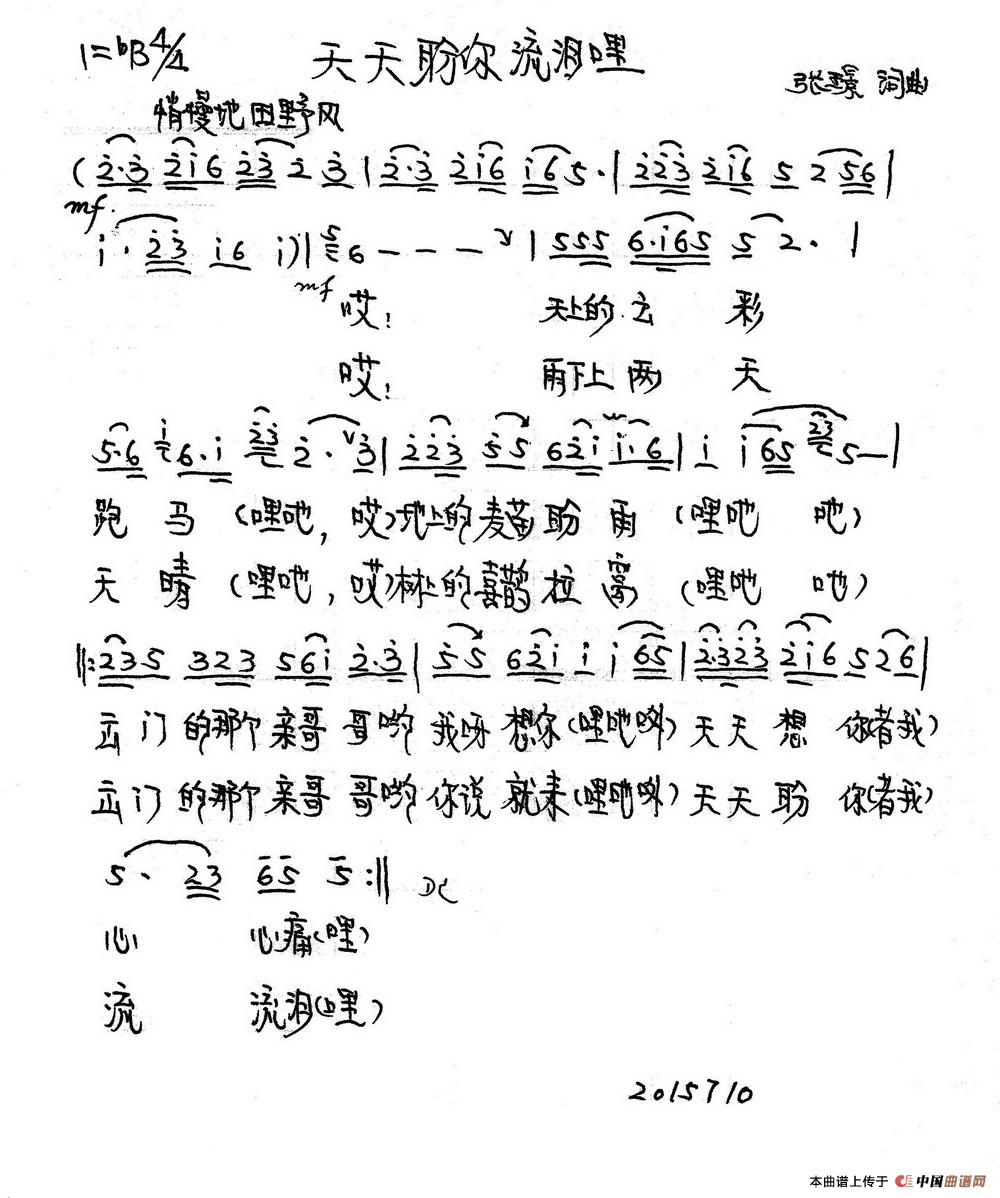 1=♭B 4/4 天天盼你流泪哩
张璟 词曲
悄慢地 田野风
(2̇·3̇ 2̇i̇6 2̇3̇ 2̇ 3̇ | 2̇·3̇ 2̇i̇6 i̇65· | 2̇2̇3̇ 2̇i̇6 5 2 56 |
mf.
i̇· 2̇3̇ i̇6 i̇) | 5 6 - - - | 555 6·i̇65 5 2· |
mf
哎! 天上的云 彩
哎! 雨下上两 天
5·6 i̇ 6·i̇ 2̇3̇ 2̇· ∨3̇ | 2̇2̇3̇ 5̇5 62̇i̇ i̇·6 | i̇ i̇65 2̇3̇ 5 - |
跑 马 (哩吔, 哎)地上的麦苗盼 雨 (哩吔 吔)
天 晴 (哩吔, 哎)林上的喜鹊拉 窝 (哩吔 吔)
‖:235 323 56i̇ 2̇·3̇ | 5̇5 62̇i̇ i̇ i̇65 | 2̇·3̇2̇3̇ 2̇i̇6 526 |
云门的那个亲哥 哥哟 我呀 想你(哩吔哟) 天天 想 你(者我)
云门的那个亲哥 哥哟 你说 就来(哩吔哟) 天天 盼 你(者我)
5· 23 65 5 :‖ DC
心 心痛(哩)
流 流泪(哩)
2015 7 10
本曲谱上传于 中国曲谱网